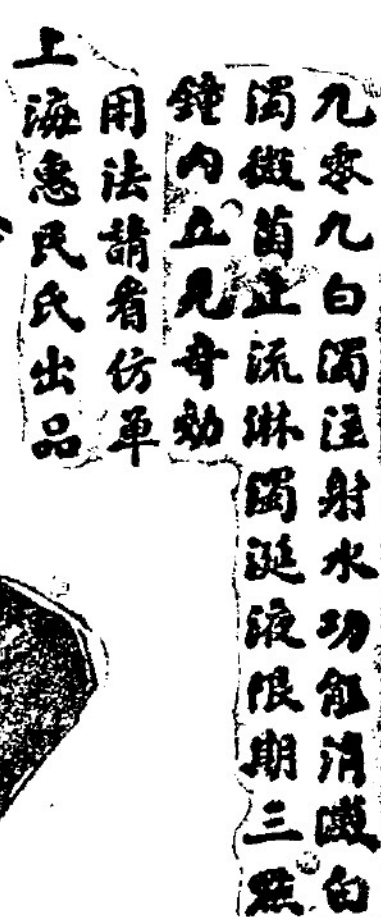 九零九白濁注射水功能消滅白
濁微菌止流淋濁涎液限期三點
鐘內立見奇効
用法請看仿单
上海惠民氏出品